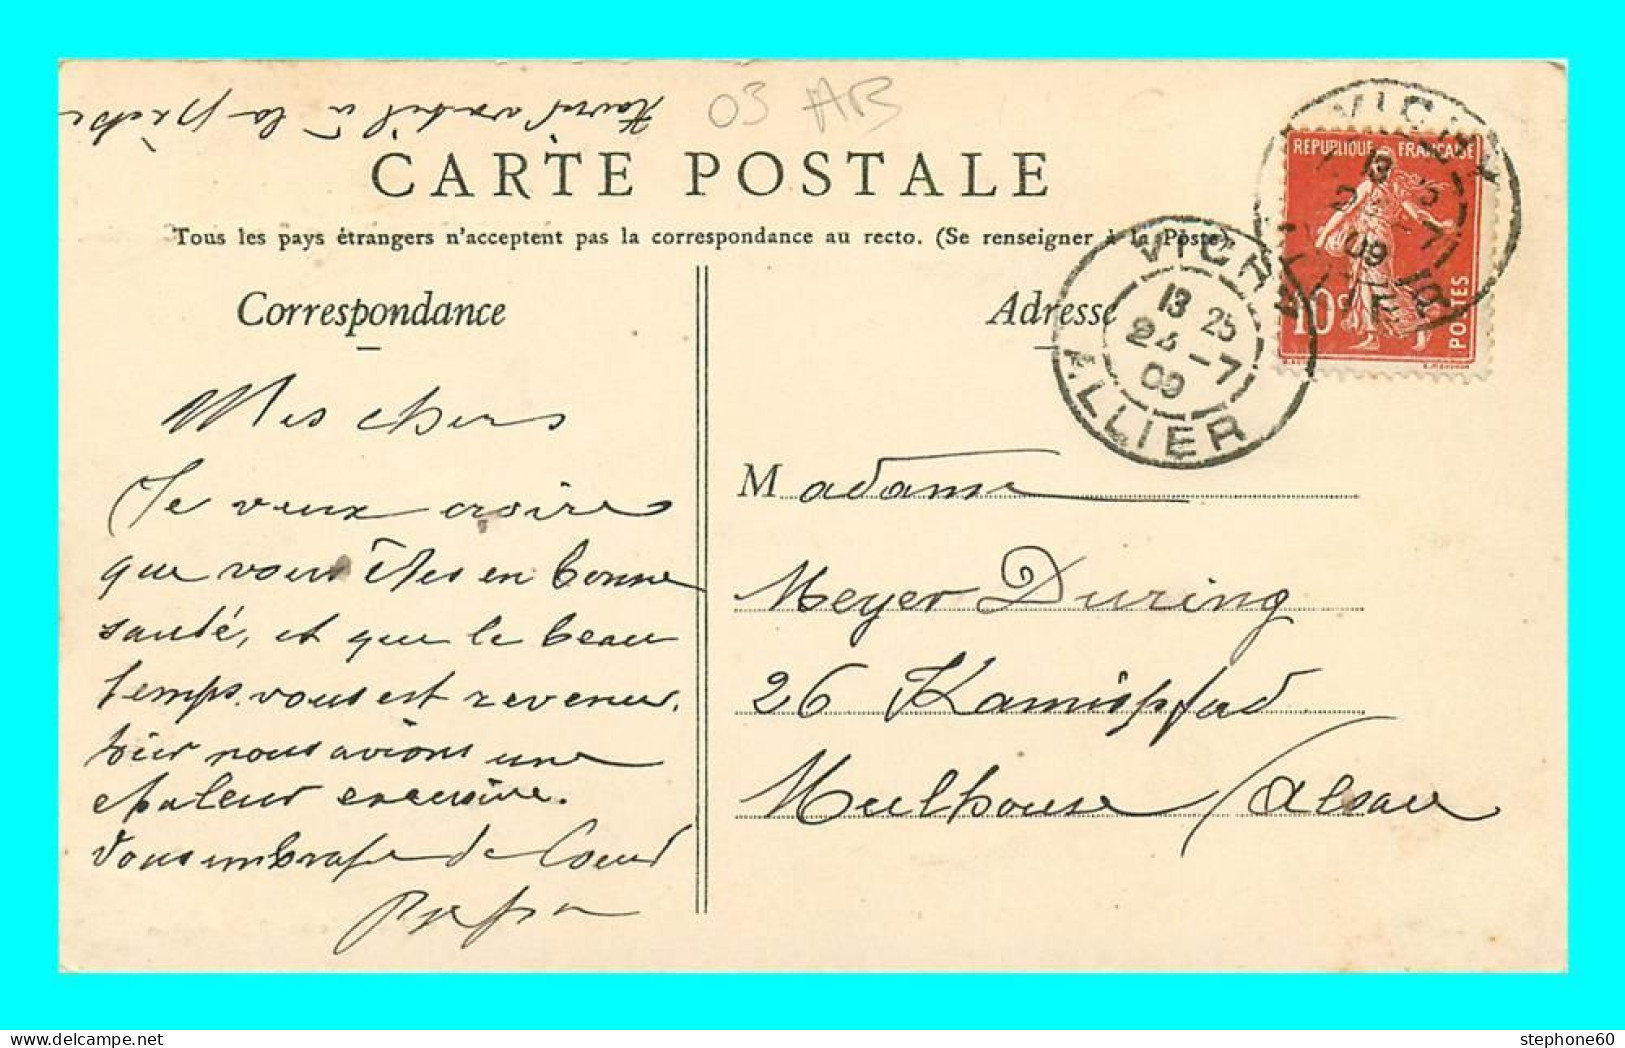 03 AB
à la
CARTE POSTALE
Tous les pays étrangers n'acceptent pas la correspondance au recto. (Se renseigner à la Poste)
Correspondance
Mes chers
Je veux croire
que vous êtes en bonne
santé, et que le beau
temps vous est revenu.
hier nous avions une
chaleur excessive.
Vous embrasse de Coeur
Papa
Adresse
VICHY
13 25
24 -7
09
ALLIER
VICHY
13 25
24 -7
09
ALLIER
REPUBLIQUE FRANÇAISE
10c
POSTES
Madame
Meyer During
26 Kamispfad
Mulhouse / Alsace
stephone60